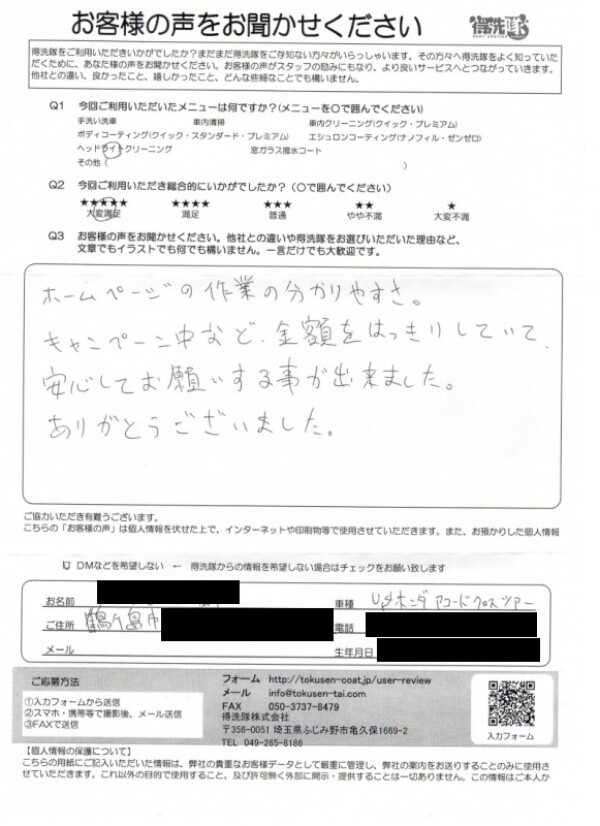 お客様の声をお聞かせください
得洗隊
得洗隊をご利用いただきいかがでしたか?まだまだ得洗隊をご存知ない方々がいらっしゃいます。その方々へ得洗隊をよく知っていた
だくために、あなた様の声をお聞かせください。お客様の声がスタッフの励みにもなり、より良いサービスへとつながっていきます。
他社との違い、良かったこと、嬉しかったこと、どんな些細なことでも構いません。
Q1 今回ご利用いただいたメニューは何ですか?(メニューを〇で囲んでください)
手洗い洗車 車内清掃 車内クリーニング(クイック・プレミアム)
ボディコーティング(クイック・スタンダード・プレミアム) エシュロンコーティング(ナノフィル・ゼンゼロ)
ヘッドライトクリーニング 窓ガラス撥水コート
その他( )
Q2 今回ご利用いただき総合的にいかがでしたか?(〇で囲んでください)
★★★★★ ★★★★ ★★★ ★★ ★
大変満足 満足 普通 やや不満 大変不満
Q3 お客様の声をお聞かせください。他社との違いや得洗隊をお選びいただいた理由など、
文章でもイラストでも何でも構いません。一言だけでも大歓迎です。
ホームページの作業の分かりやすさ。
キャンペーン中など、金額をはっきりしていて、
安心してお願いする事が出来ました。
ありがとうございました。
ご協力いただき有難うございます。
こちらの「お客様の声」は個人情報を伏せた上で、インターネットや印刷物等で使用させていただきます。また、お預かりした個人情報
DMなどを希望しない ← 得洗隊からの情報を希望しない場合はチェックをお願い致します
お名前 車種 ホンダ アコードクロスツアー
ご住所 鶴ヶ島市 電話
メール 生年月日
ご応募方法
①入力フォームから送信
②スマホ・携帯等で撮影後、メール送信
③FAXで送信
フォーム http://tokusen-coat.jp/user-review
メール info@tokusen-tai.com
FAX 050-3737-8479
得洗隊株式会社
〒356-0051 埼玉県ふじみ野市亀久保1669-2
TEL 049-265-8186
入力フォーム
【個人情報の保護について】
こちらの用紙にご記入いただいた情報は、弊社の貴重なお客様データとして厳重に管理し、弊社の案内をお送りすることのみに使用さ
せていただきます。これ以外の目的で使用すること、及び許可無く外部に開示・提供することは一切ありません。この情報はご本人か